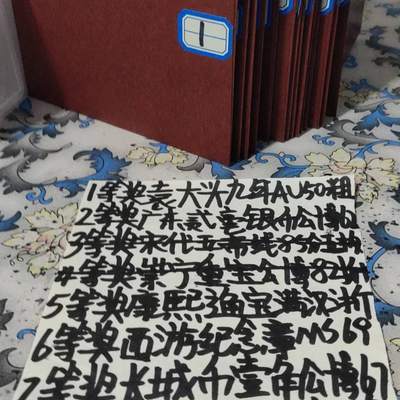 1
1等奖袁大头九年AU50粗
2等奖广东贰毫银币公博
3等奖宋代五帝钱85公博
4等奖崇宁重宝公博82
5等奖康熙通宝满汉浙
6等奖西游纪念章MS69
7等奖长城币壹角公博67